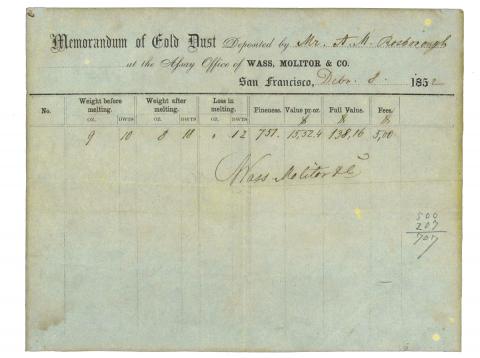 Memorandum of Gold Dust Deposited by Mr. A. M. Rosborough
at the Assay Office of WASS, MOLITOR & CO.
San Francisco, Decbr. 8. 1852
No. Weight before melting. Weight after melting. Loss in melting. Fineness. Value pr. oz. Full Value. Fees.
oz. DWTS oz. DWTS oz. DWTS $ $ $
9 10 8 18 " 12 751. 15,52.4 138,16 5,00
Wass Molitor & Co
500
207
707